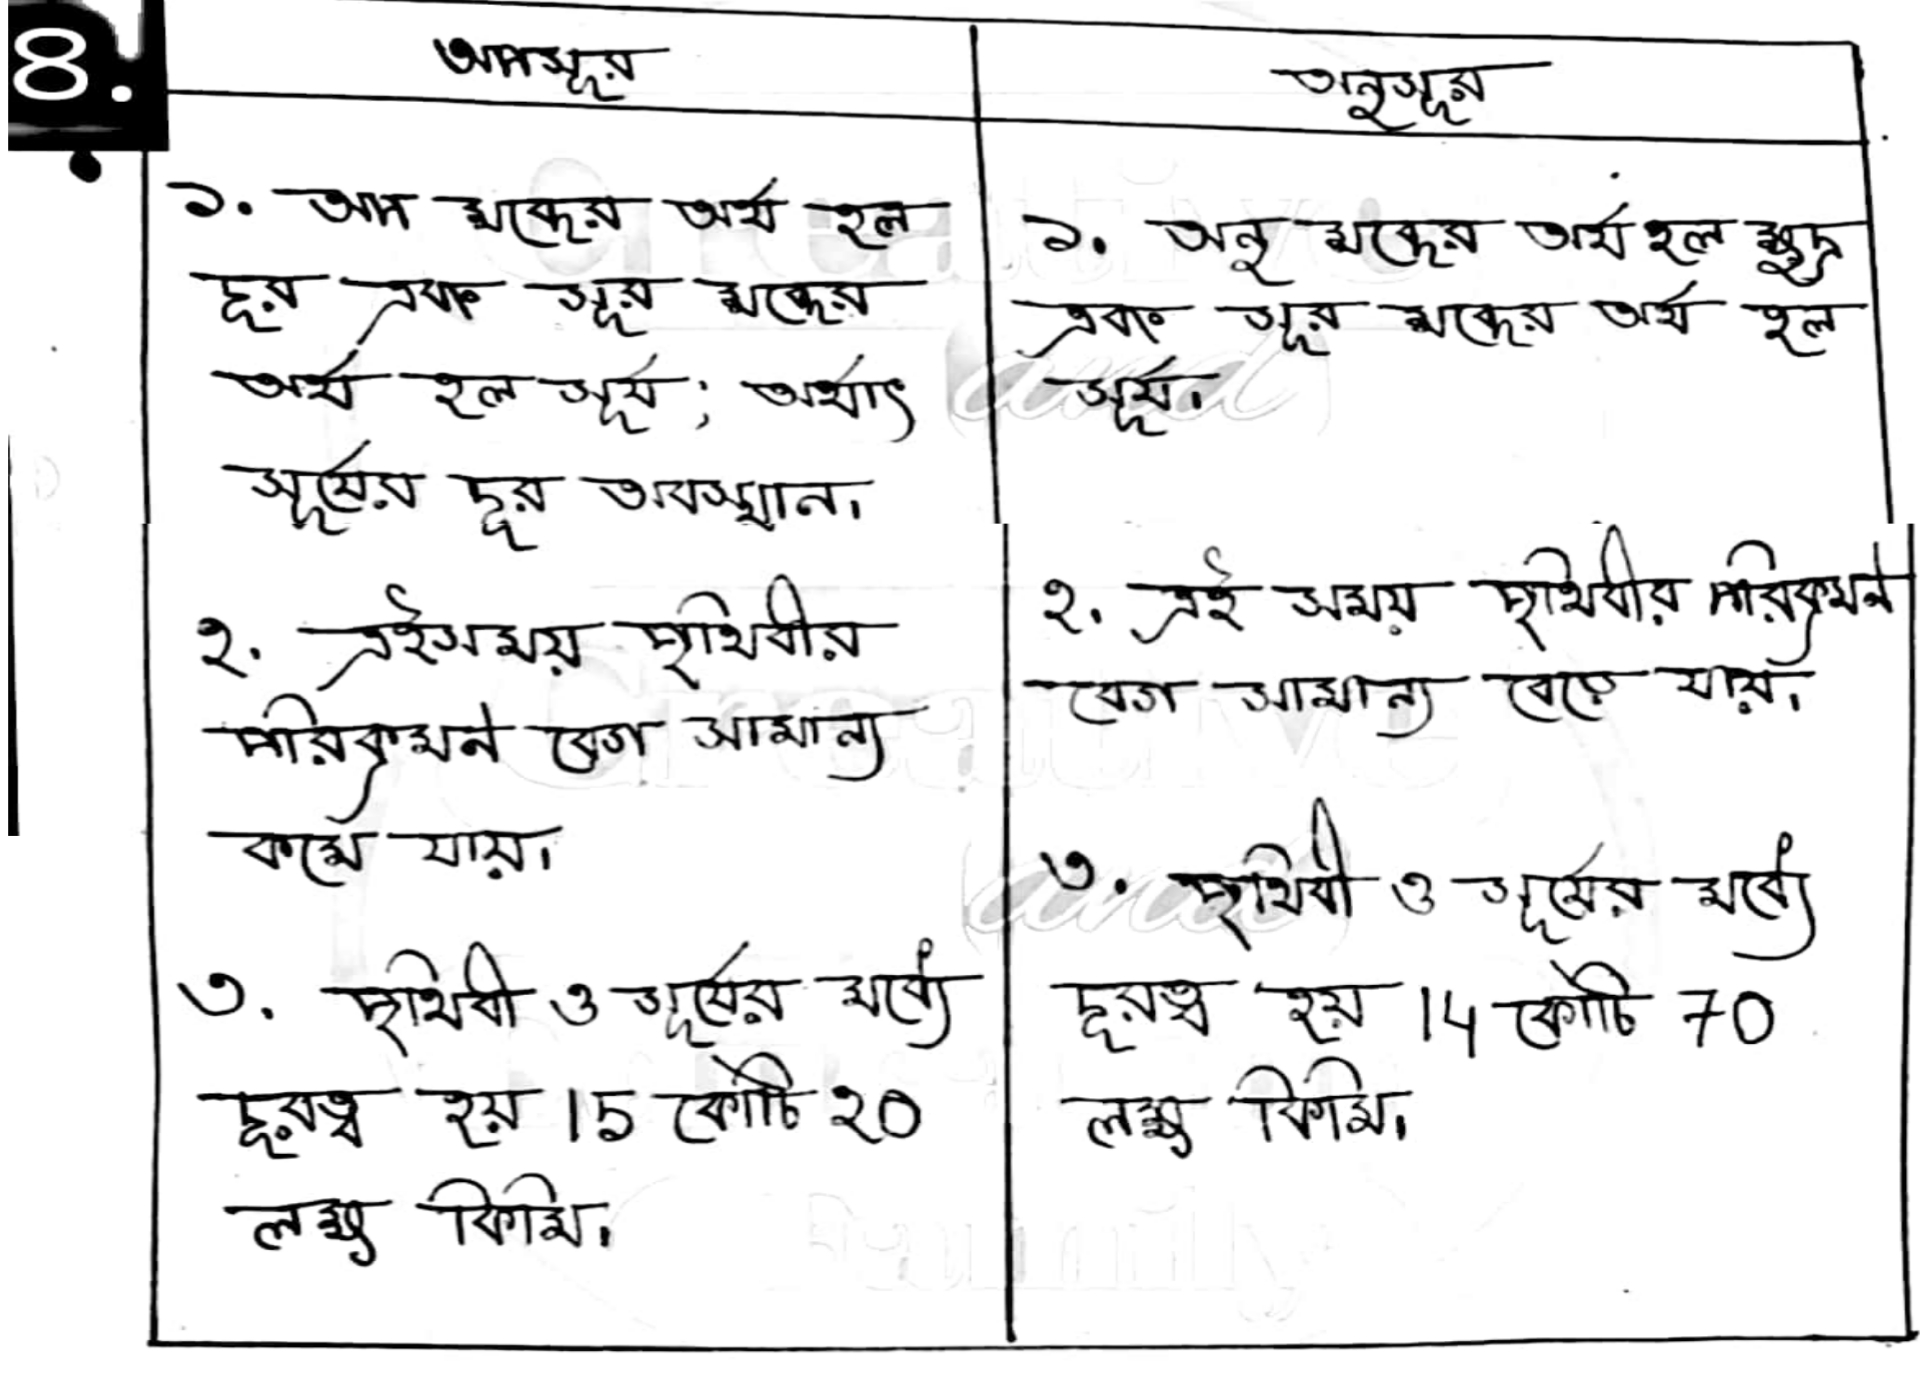 8.
অপসূর
অনুসূর
১. অপ শব্দের অর্থ হল
দূর এবং সূর শব্দের
অর্থ হল সূর্য; অর্থাৎ
সূর্যের দূর অবস্থান।
২. এইসময় পৃথিবীর
পরিক্রমন বেগ সামান্য
কমে যায়।
৩. পৃথিবী ও সূর্যের মধ্যে
দূরত্ব হয় 15 কোটি 20
লক্ষ কিমি।
১. অনু শব্দের অর্থ হল ক্ষুদ্র
এবং সূর শব্দের অর্থ হল
সূর্য।
২. এই সময় পৃথিবীর পরিক্রমন
বেগ সামান্য বেড়ে যায়।
৩. পৃথিবী ও সূর্যের মধ্যে
দূরত্ব হয় 14 কোটি 70
লক্ষ কিমি।
Creative
and
Creative
and
Family